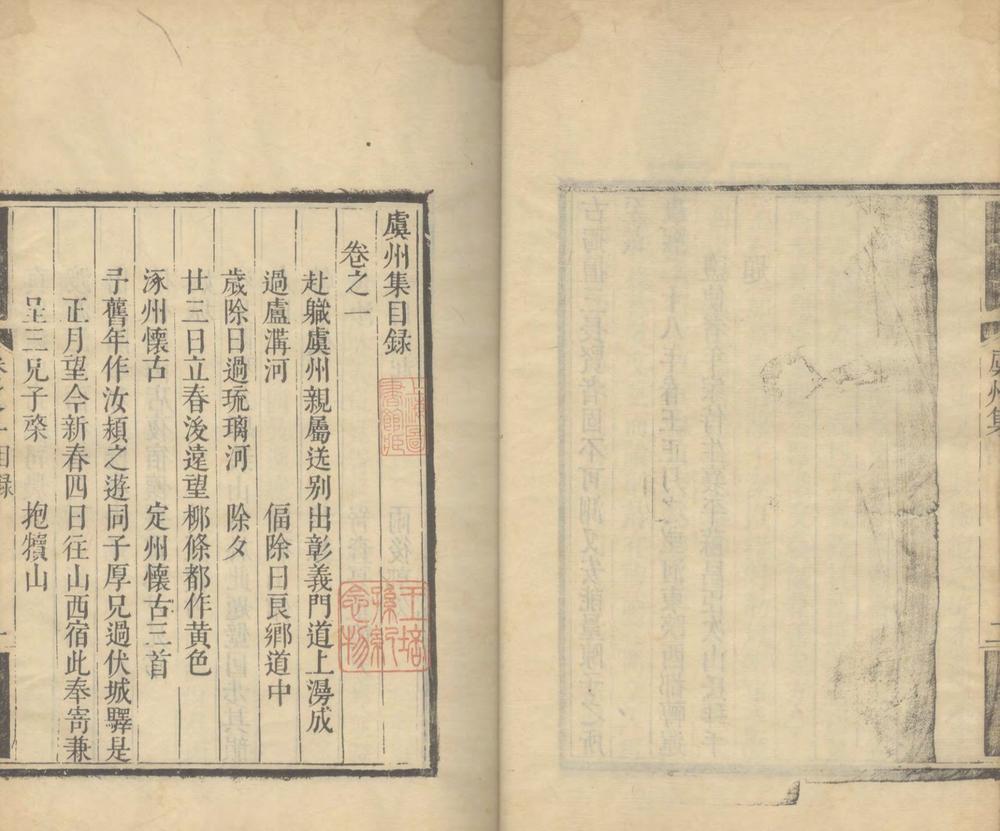 虞州集
二
虞州集目録
卷之一
赴職虞州親屬送别出彰義門道上漫成
過盧溝河　偪除日良鄉道中
歲除日過琉璃河　除夕
廿三日立春後遠望栁條都作黄色
涿州懷古　定州懷古三首
予舊年作汝潁之遊同子厚兄過伏城驛是
正月望今新春四日往山西宿此奉寄兼
呈三兄子棨　抱犢山
王培孫紀念物